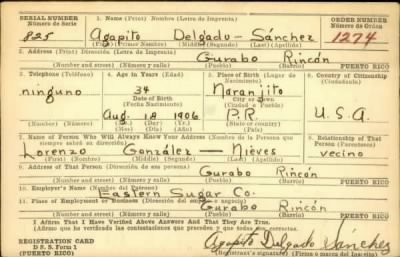 SERIAL NUMBER 1. Name (Print) Nombre (Letra de Imprenta) ORDER NUMBER
Número de Serie Número de Orden
825 Agapito Delgado - Sánchez 1274
(First) (Primer Nombre) (Middle) (Segundo) (Last) (Apellido)
2. Address (Print) Dirección (Letra de Imprenta)
Gurabo Rincón
(Number and street) (Número y calle) PUERTO RICO
3. Telephone (Teléfono) 4. Age in Years (Edad) 5. Place of Birth (Lugar de Nacimiento) 6. Country of Citizenship (Ciudadanía)
ninguno 34 Naranjito
Date of Birth City or Town
(Fecha Nacimiento) (Ciudad o Pueblo)
Aug. 18 1906 P.R. U.S.A.
(Mo.) (Day) (Yr.) (State or country)
(Mes) (Día) (Año) (Estado o país)
7. Name of Person Who Will Always Know Your Address (Nombre de la Persona que siempre sabrá su dirección) 8. Relationship of That Person (Parentesco)
Lorenzo González - Nieves vecino
(First) (Nombre) (Middle) (Segundo) (Last) (Apellido)
9. Address of That Person (Dirección de esa persona)
Gurabo Rincón
PUERTO RICO
10. Employer's Name (Nombre del Patrono)
Eastern Sugar Co.
11. Place of Employment or Business (Dirección del empleo)
Gurabo Rincón
PUERTO RICO
I Affirm That I Have Verified Above Answers And That They Are True.
(Afirmo que he verificado las contestaciones que preceden y que son ciertas.)
REGISTRATION CARD Agapito Delgado Sánchez
D S. S. Form 1 (Registrant's signature)
(PUERTO RICO)